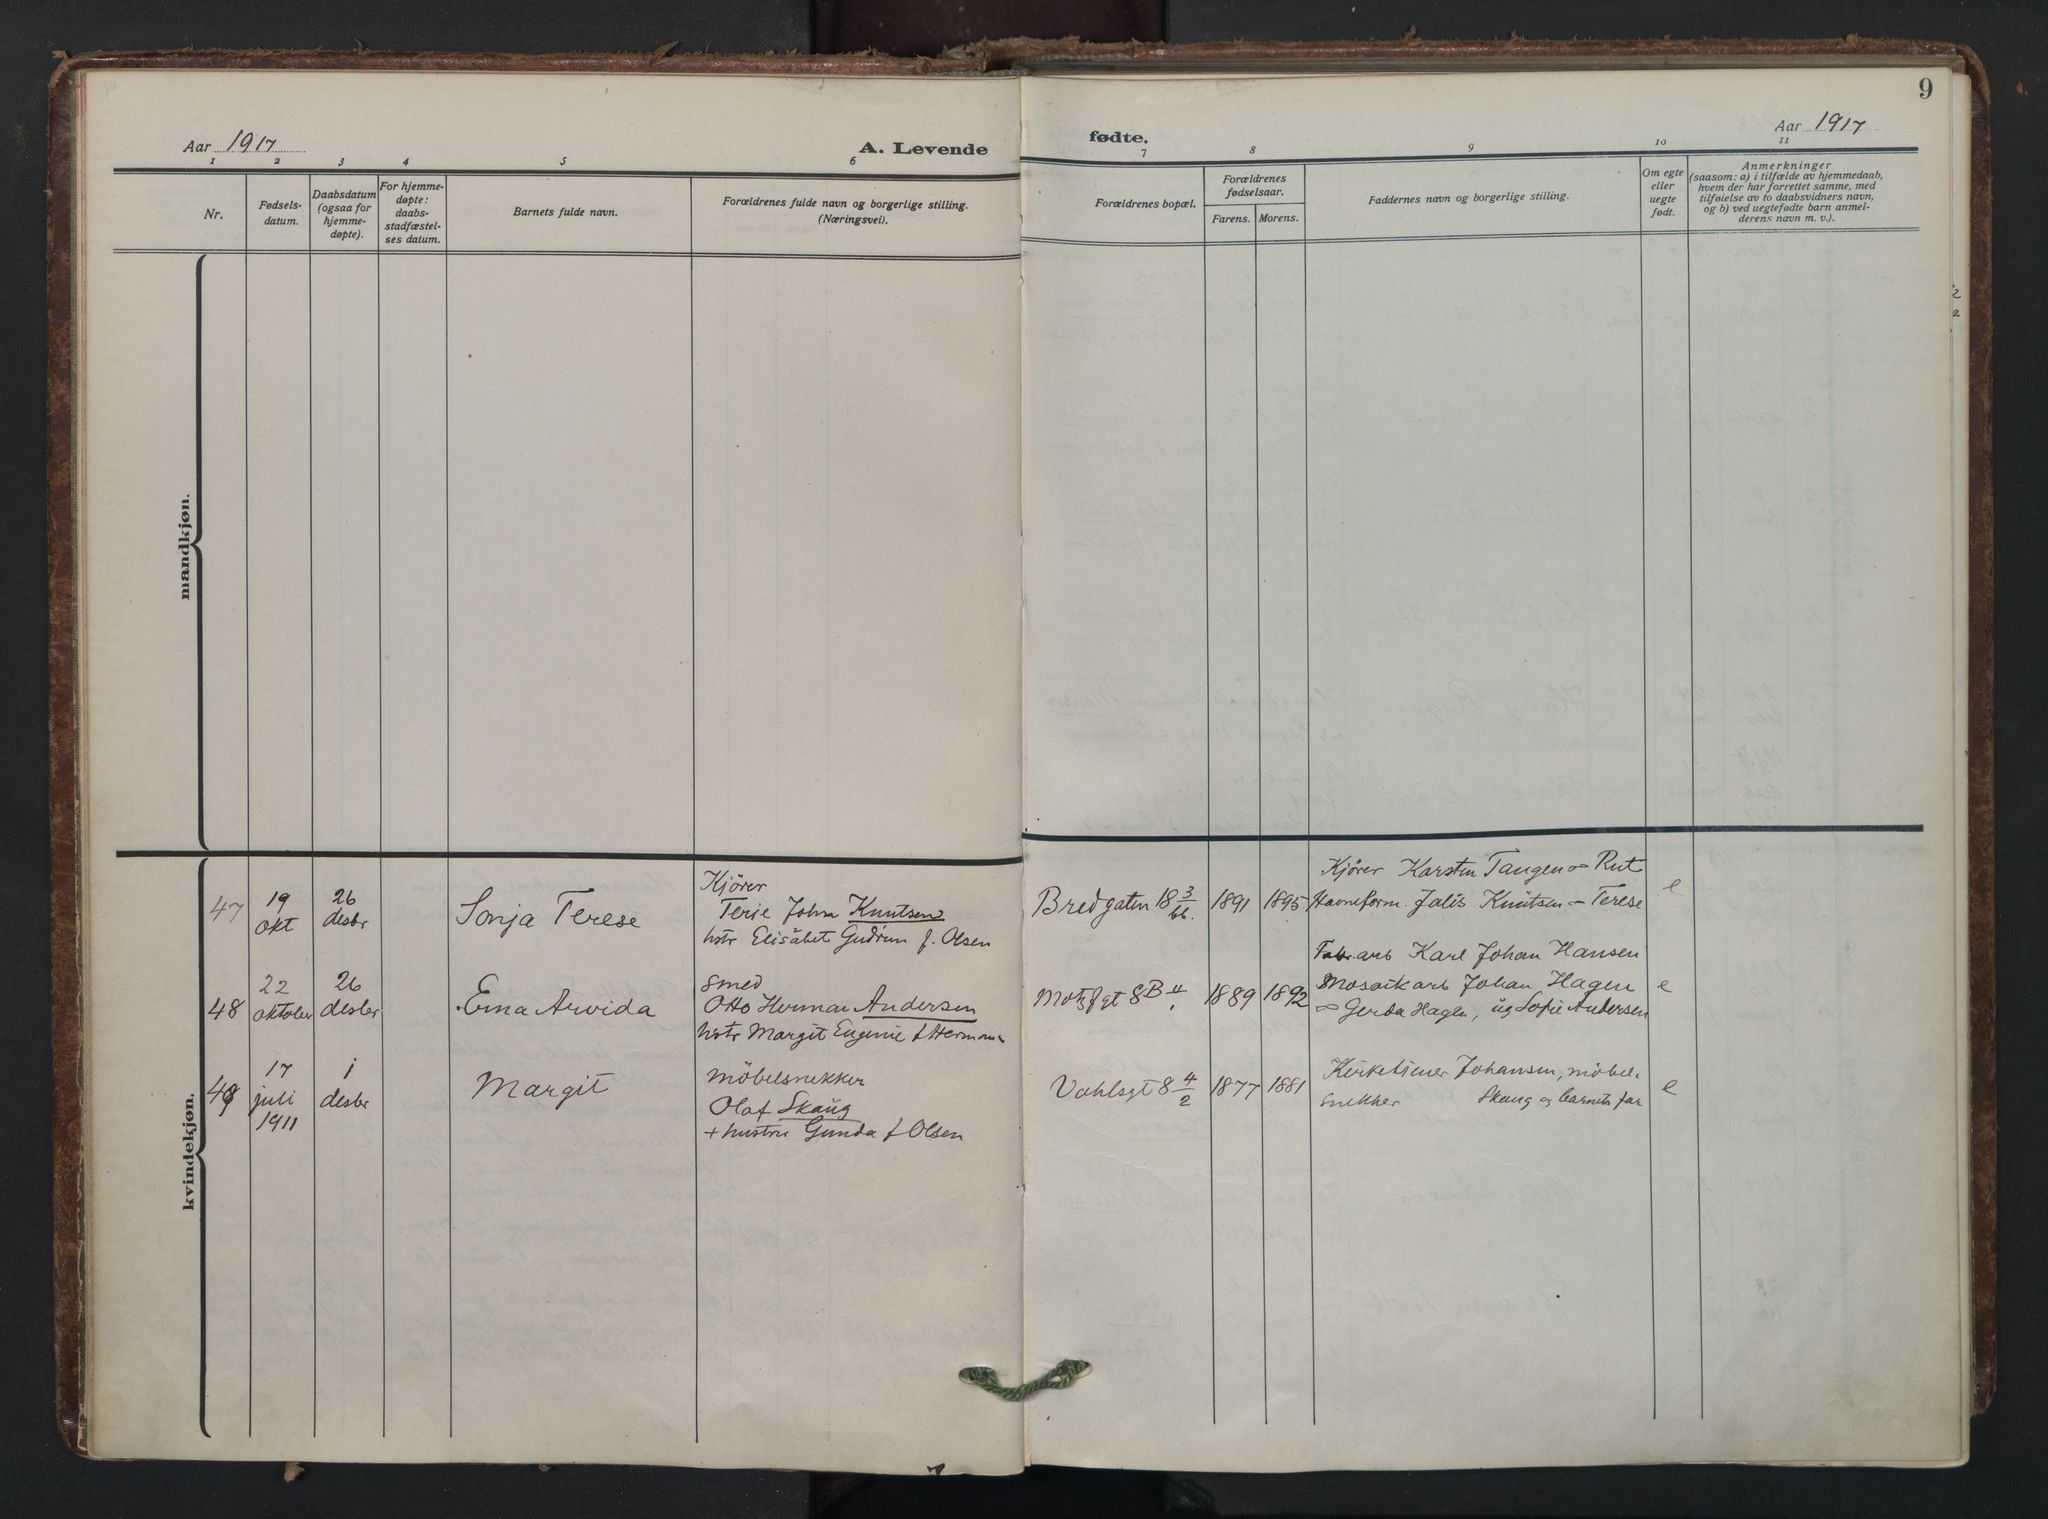 9
Aar 1917
A. Levende
fødte.
Aar 1917
1 2 3 4 5 6 7 8 9 10 11
Nr.
Fødsels-
datum.
Daabsdatum
(ogsaa for
hjemme-
døpte).
For hjemme-
døpte:
daabs-
stadfæstel-
ses datum.
Barnets fulde navn.
Forældrenes fulde navn og borgerlige stilling.
(Næringsvei).
Forældrenes bopæl.
Forældrenes
fødselsaar.
Farens. Morens.
Faddernes navn og borgerlige stilling.
Om egte
eller
uegte
født.
Anmerkninger
(saasom: a) i tilfælde av hjemmedaab,
hvem der har forrettet samme, med
tilføielse av to daabsvidners navn,
og b) ved uegtefødte barn anmel-
derens navn m. v.).
mandkjøn.
kvindekjøn.
47
19
okt
26
desbr
Sonja Terese
Kjører
Terje John Knutsen
hstr Elisabet Gudrun f. Olsen
Bredgaten 18 3/bb.
1891
1895
Kjører Karsten Tangen Rut
Havneform. Knutsen – Terese
e
48
22
oktober
26
desbr
Erna Arvida
Smed
Otto Herman Andersen
hstr Margit Eugenie f Herman
Motzfgt 8B
1889
1892
Fabr.arb Karl Johan Hansen
Mosaikarb Johan Hagen
Gerda Hagen, ug Sofie Andersen
e
49
17
juli
1911
1
desbr
Margit
Möbelsnekker
Olaf Skaug
+ hustru Gunda f Olsen
Vahlsgt 8 4/2
1877
1881
Kirketjener Johansen, möbel-
snekker Skaug og barnets far
e